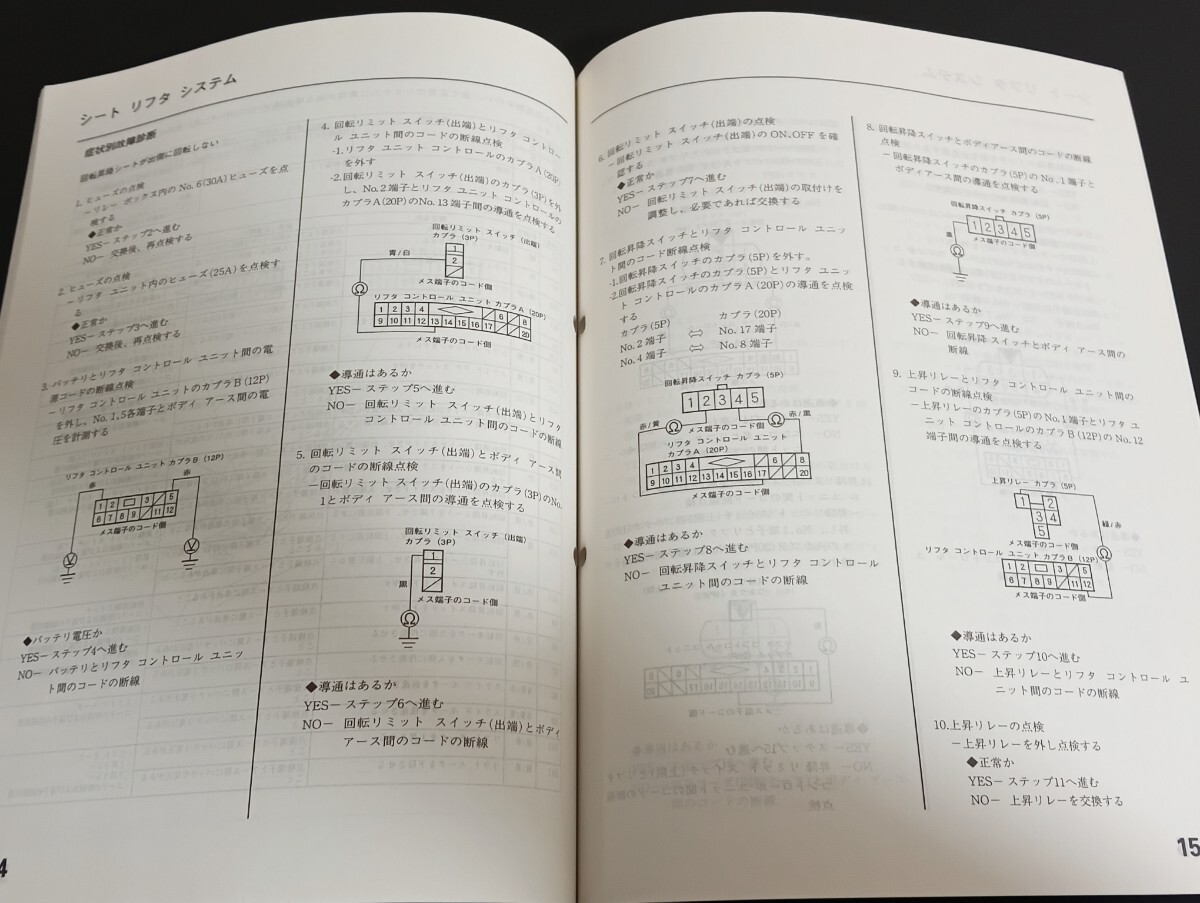 シート リフタ システム
症状別故障診断
回転昇降シートが出側に回転しない
1. ヒューズの点検
－リレー ボックス内の No. 6(30A)ヒューズを点
検する
◆正常か
YES－ステップ2へ進む
NO－ 交換後、再点検する
2. ヒューズの点検
－リフタ ユニット内のヒューズ(25A)を点検す
る
◆正常か
YES－ステップ3へ進む
NO－ 交換後、再点検する
3. バッテリとリフタ コントロール ユニット間の電
源コードの断線点検
－リフタ コントロール ユニットのカプラB(12P)
を外し、No.1,5各端子とボディ アース間の電
圧を計測する
リフタ コントロール ユニット カプラB (12P)
赤
赤
1 2 3 5
6 7 8 9 11 12
メス端子のコード側
V
V
◆バッテリ電圧か
YES－ステップ4へ進む
NO－ バッテリとリフタ コントロール ユニッ
ト間のコードの断線
4. 回転リミット スイッチ(出端)とリフタ コントロー
ル ユニット間のコードの断線点検
-1. リフタ ユニット コントロールのカプラA(20P)
を外す
-2. 回転リミット スイッチ(出端)のカプラ(3P)を外
し、No.2端子とリフタ ユニット コントロールの
カプラA(20P)のNo.13端子間の導通を点検する
回転リミット スイッチ (出端)
カプラ (3P)
1
2
青/白
メス端子のコード側
Ω
リフタ コントロール ユニット カプラA (20P)
1 2 3 4 6 8
9 10 11 12 13 14 15 16 17 20
メス端子のコード側
◆導通はあるか
YES－ステップ5へ進む
NO－ 回転リミット スイッチ(出端)とリフタ
コントロール ユニット間のコードの断線
5. 回転リミット スイッチ(出端)とボディ アース間
のコードの断線点検
－回転リミット スイッチ(出端)のカプラ(3P)のNo.
1とボディ アース間の導通を点検する
回転リミット スイッチ (出端)
カプラ (3P)
1
2
黒
メス端子のコード側
Ω
◆導通はあるか
YES－ステップ6へ進む
NO－ 回転リミット スイッチ(出端)とボディ
アース間のコードの断線
4
6. 回転リミット スイッチ(出端)の点検
－回転リミット スイッチ(出端)の ON、OFF を確
認する
◆正常か
YES－ステップ7へ進む
NO－ 回転リミット スイッチ(出端)の取付けを
調整し、必要であれば交換する
7. 回転昇降スイッチとリフタ コントロール ユニッ
ト間のコード断線点検
-1.回転昇降スイッチのカプラ(5P)を外す。
-2.回転昇降スイッチのカプラ(5P)とリフタ ユニッ
ト コントロールのカプラA(20P)の導通を点検
する
カプラ(5P) カプラ(20P)
No. 2 端子 ⇔ No. 17 端子
No. 4 端子 ⇔ No. 8 端子
回転昇降スイッチ カプラ (5P)
1 2 3 4 5
赤/黄 Ω メス端子のコード側 Ω 赤/黒
リフタ コントロール ユニット
カプラA (20P)
1 2 3 4 6 8
9 10 11 12 13 14 15 16 17 20
メス端子のコード側
◆導通はあるか
YES－ステップ8へ進む
NO－ 回転昇降スイッチとリフタ コントロール
ユニット間のコードの断線
8. 回転昇降スイッチとボディアース間のコードの断線
点検
－回転昇降スイッチのカプラ(5P)の No..1 端子と
ボディアース間の導通を点検する
回転昇降スイッチ カプラ (5P)
1 2 3 4 5
黒
メス端子のコード側
Ω
◆導通はあるか
YES－ステップ9へ進む
NO－ 回転昇降スイッチとボディ アース間の
断線
9. 上昇リレーとリフタ コントロール ユニット間の
コードの断線点検
－上昇リレーのカプラ(5P)のNo.1端子とリフタ ユ
ニット コントロールのカプラB(12P)のNo.12
端子間の導通を点検する
上昇リレー カプラ (5P)
1 2
3 4
5
緑/赤
メス端子のコード側
Ω
リフタ コントロール ユニット カプラB (12P)
1 2 3 5
6 7 8 9 11 12
メス端子のコード側
◆導通はあるか
YES－ステップ10へ進む
NO－ 上昇リレーとリフタ コントロール ユ
ニット間のコードの断線
10.上昇リレーの点検
－上昇リレーを外し点検する
◆正常か
YES－ステップ11へ進む
NO－ 上昇リレーを交換する
15